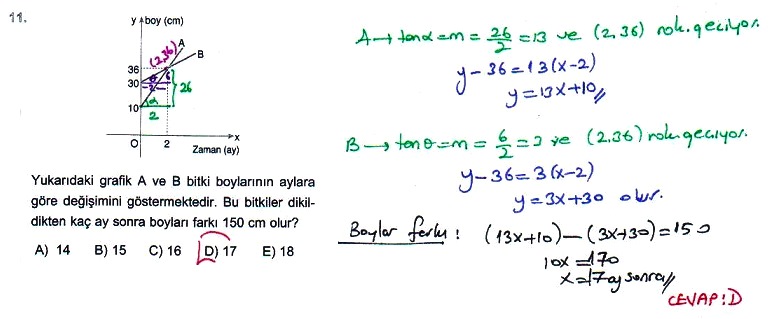 11.
y boy (cm)
A
(2,36)
B
36
30
10
θ
6
2
26
α
2
O
2
x
Zaman (ay)
Yukarıdaki grafik A ve B bitki boylarının aylara
göre değişimini göstermektedir. Bu bitkiler dikil-
dikten kaç ay sonra boyları farkı 150 cm olur?
A) 14 B) 15 C) 16 D) 17 E) 18
A → tanα = m = 26/2 = 13 ve (2,36) nok. geçiyor.
y - 36 = 13(x-2)
y = 13x+10//
B → tanθ = m = 6/2 = 3 ve (2,36) nok. geçiyor.
y - 36 = 3(x-2)
y = 3x+30 olur.
Boylar farkı : (13x+10) - (3x+30) = 150
10x = 170
x = 17 ay sonra//
CEVAP: D